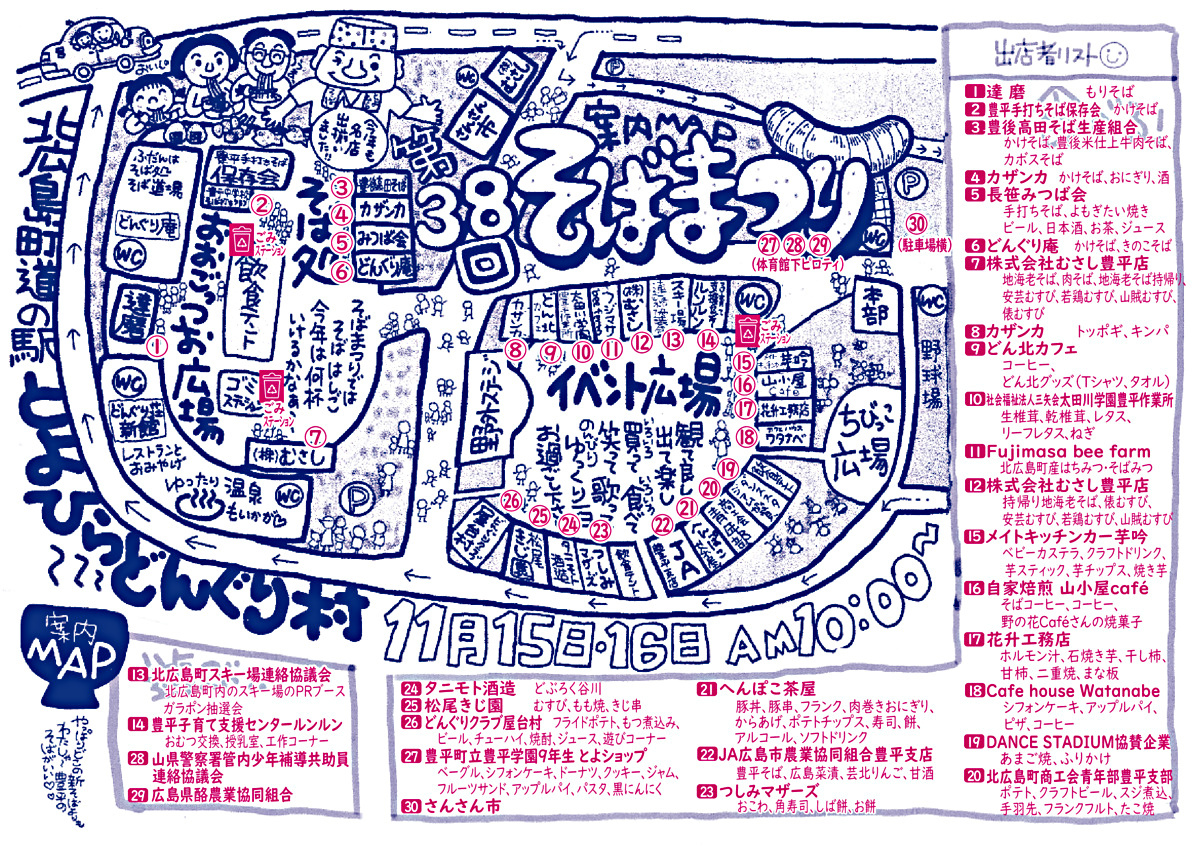 案内MAP
第38回
そばまつり
今年も名店出揃いました!!
北広島町道の駅
とよひらどんぐり村
11月15日・16日 AM10:00〜
そば処
おおごっつお広場
飲食テント
ふだんは
そば処
そば道場
どんぐり庵
WC
豊平手打ちそば
保存会
②
ごみ
ステーション
③
豊後高田そば
④
カザンカ
⑤
みつば会
⑥
どんぐり庵
達磨
①
WC
どんぐり荘
新館
レストランと
おみやげ
ゆったり
温泉
もいかが
WC
ゴミ
ステーション
ごみ
ステーション
⑦
(株)むさし
P
そばまつりでは
そばはしご
今年は何杯
いけるかなあ
WC
P
P
㉚
(駐車場横)
㉗ ㉘ ㉙
(体育館下ピロティ)
WC
本部
WC
野球場
ちびっこ
広場
野外ステージ
イベント広場
観て良し
出て楽し
いろいろ買って
いろいろ食べて
笑って歌って
のんびりゆっくり
お過ごし下さい
カザンカ
どん北
(株)むさし
スキー場
ルンルン
WC
ごみ
ステーション
⑧ ⑨ ⑩ ⑪ ⑫ ⑬ ⑭
⑮
芋吟
⑯
山小屋
⑰
花升工務店
⑱
カフェハウス
ワタナベ
⑲
⑳
㉑
㉒
JA
㉓
つしみ
マザーズ
㉔
㉕
松尾
きじ園
㉖
案内
MAP
出店者リスト
1 達磨 もりそば
2 豊平手打ちそば保存会 かけそば
3 豊後高田そば生産組合
かけそば。豊後米仕上牛肉そば、
カボスそば
4 カザンカ かけそば、おにぎり、酒
5 長笹みつば会
手打ちそば、よもぎたい焼き
ビール、日本酒、お茶、ジュース
6 どんぐり庵 かけそば、きのこそば
7 株式会社むさし豊平店
地海老そば、肉そば、地海老そば持帰り、
安芸むすび、若鶏むすび、山賊むすび、
俵むすび
8 カザンカ トッポギ、キンパ
9 どん北カフェ
コーヒー、
どん北グッズ(Tシャツ、タオル)
10 社会福祉法人三矢会太田川学園豊平作業所
生椎茸、乾椎茸、レタス、
リーフレタス、ねぎ
11 Fujimasa bee farm
北広島町産はちみつ・そばみつ
12 株式会社むさし豊平店
持帰り地海老そば、俵むすび、
安芸むすび、若鶏むすび、山賊むすび
15 メイトキッチンカー芋吟
ベビーカステラ、クラフトドリンク、
芋スティック、芋チップス、焼き芋
16 自家焙煎 山小屋café
そばコーヒー、コーヒー、
野の花Caféさんの焼菓子
17 花升工務店
ホルモン汁、石焼き芋、干し柿、
甘柿、二重焼、まな板
18 Cafe house Watanabe
シフォンケーキ、アップルパイ、
ピザ、コーヒー
19 DANCE STADIUM協賛企業
あまご焼、ふりかけ
20 北広島町商工会青年部豊平支部
ポテト、クラフトビール、スジ煮込、
手羽先、フランクフルト、たこ焼
13 北広島町スキー場連絡協議会
北広島町内のスキー場のPRブース
ガラポン抽選会
14 豊平子育て支援センタールンルン
おむつ交換、授乳室、工作コーナー
28 山県警察署管内少年補導共助員
連絡協議会
29 広島県酪農業協同組合
24 タニモト酒造 どぶろく谷川
25 松尾きじ園 むすび、もも焼、きじ串
26 どんぐりクラブ屋台村 フライドポテト、もつ煮込み、
ビール、チューハイ、焼酎、ジュース、遊びコーナー
27 豊平町立豊平学園9年生 とよショップ
ベーグル、シフォンケーキ、ドーナツ、クッキー、ジャム、
フルーツサンド、アップルパイ、パスタ、黒にんにく
30 さんさん市
21 へんぽこ茶屋
豚丼、豚串、フランク、肉巻きおにぎり、
からあげ、ポテトチップス、寿司、餅、
アルコール、ソフトドリンク
22 JA広島市農業協同組合豊平支店
豊平そば、広島菜漬、芸北りんご、甘酒
23 つしみマザーズ
おこわ、角寿司、しば餅、お餅